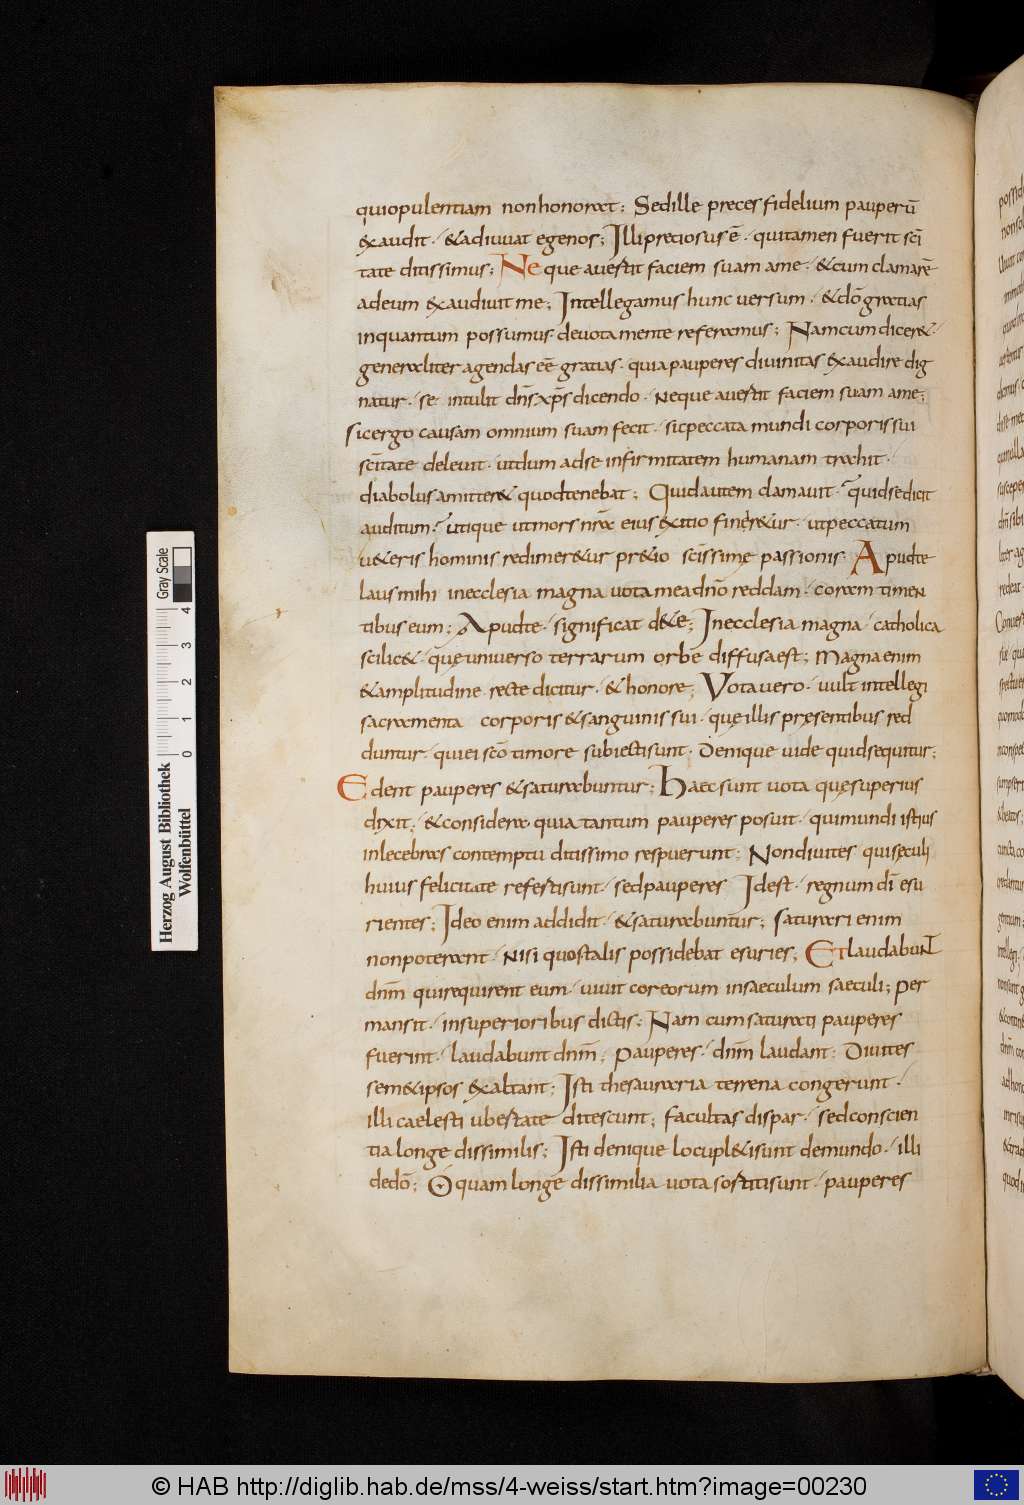 quiopulentiam nonhonorat; Sedille preces fidelium pauperū
exaudit · &adiuuat egenos; Illi preciosus ē · quitamen fuerit sc̄i
tate ditissimus; Ne que auertit faciem suam ame · &cum clamarē
adeum exaudiuit me; Intellegamus hunc uersum · &dō gratias
inquantum possumus deuota mente referamus; Namcum dicer&
generaliter agendas eē gratias · quia pauperes diuinitas exaudire dig
natur · se intulit dn̄s xp̄s dicendo · Neque auertit faciem suam ame;
sicergo causam omnium suam fecit · sicpeccata mundi corporis sui
sc̄itate deleuit · utdum adse infirmitatem humanam trahit ·
diabolus amitter& quodtenebat; Quidautem clamauit · quidse dicit
auditum · utique utmors nr̄a eius exitio finer&ur · utpeccatum
u&eris hominis redimer&ur pr&io sc̄issimę passionis · Apudte
laus mihi inecclesia magna uota mea dn̄o reddam · coram timen
tibus eum; Apudte · significat de te; Inecclesia magna · catholica
scilic& · quę uniuerso terrarum orbe diffusa est; Magna enim
&amplitudine recte dicitur · &honore; Vota uero · uult intellegi
sacramenta corporis &sanguinis sui · quę illis pręsentibus red
duntur · quiei sc̄o timore subiecti sunt · Denique uide quid sequitur;
Edent pauperes &saturabuntur; Haec sunt uota quę superius
dixit; &considera · quia tantum pauperes posuit · quimundi istius
inlecebras contemptu ditissimo respuerunt; Nondiuites qui sęculi
huius felicitate refertisunt · sedpauperes Idest · regnum dī esu
rientes; Ideo enim addidit · &saturabuntur; saturari enim
nonpoterant · Nisi quostalis possidebat esuries; Et laudabunt
dnm̄ quirequirent eum · uiuit cor eorum insaeculum saeculi; Per
mansit · insuperioribus dictis; Nam cum saturati pauperes
fuerint · laudabunt dnm̄; Pauperes · dnm̄ laudant; Diuites
sem&ipsos exaltant; Isti thesauraria terrena congerunt ·
illi caelesti ubertate ditescunt; facultas dispar · sedconscien
tia longe dissimilis; Isti denique locupl&isunt demundo · illi
dedō; O quam longe dissimilia uota sortitisunt · pauperes
Herzog August Bibliothek
Wolfenbüttel
0 1 2 3 4
Gray Scale
© HAB http://diglib.hab.de/mss/4-weiss/start.htm?image=00230